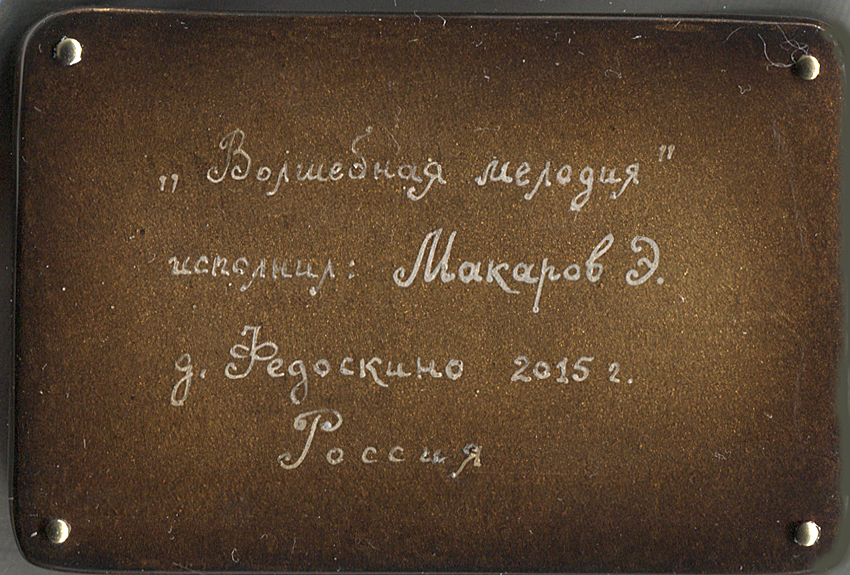 „Волшебная мелодия"
исполнил: Макаров Э.
д. Федоскино 2015 г.
Россия